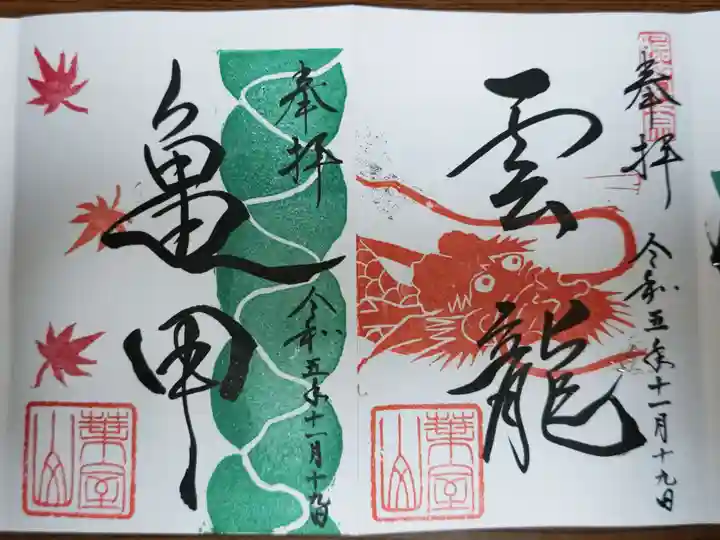 奉拝
雲龍
令和五年十一月十九日
葉室山
奉拝
亀甲
令和五年十一月十九日
葉室山